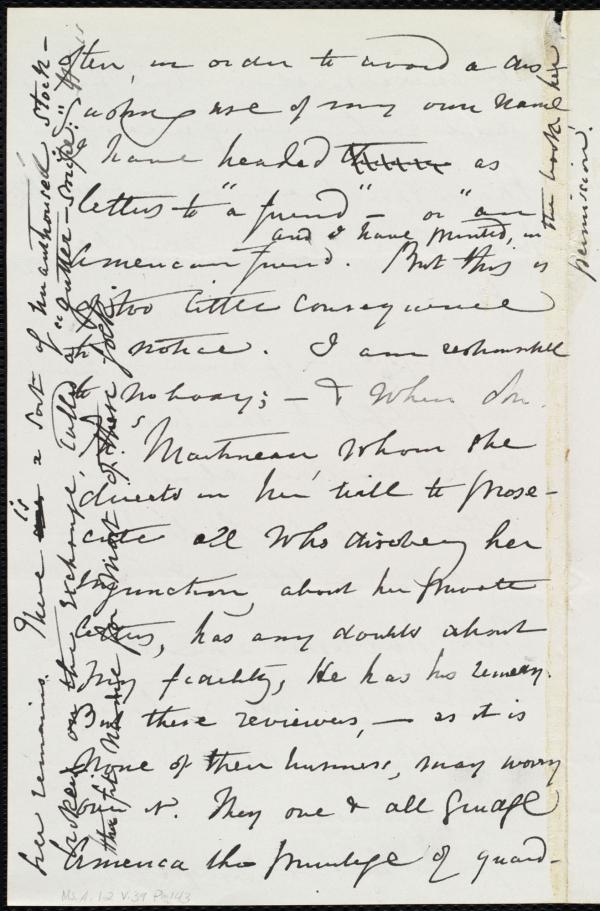 often, in order to avoid a dis-
using use of my own name
I have headed as
letters to "a friend" — or "an
and I have printed, in
American friend". But this is
of too little consequence
to notice. I am responsible
to nobody; — & when
Martineau, whom she
directs in her will to prose-
cute all who disobey her
injunction, about her private
letters, has any doubts about
my fidelity, He has his remedy.
But these reviewers, — as it is
None of their business, may worry
over it. They one & all grudge
America the privilege of guard-
the book her
permission.
her remains. There is a sort of unauthorised stock-
broker on the Exchange, called a "gutter-snipe." The
the fit name for most of these folk
Ms. A. 1.2 V.39 P.143